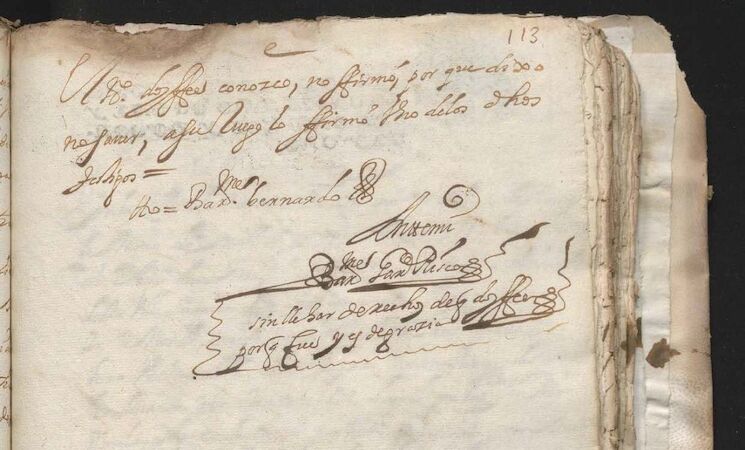 113
Yo el esno. doy ffee conozco, no ffirmó, por que dixo
no saver, a su Ruego lo ffirmó Vno de los dhos
testigos =
tto = Barme. bernardo
Ante mi
Barme.
sin llebar derechos de q doy ffee
por q fue y es de grazia